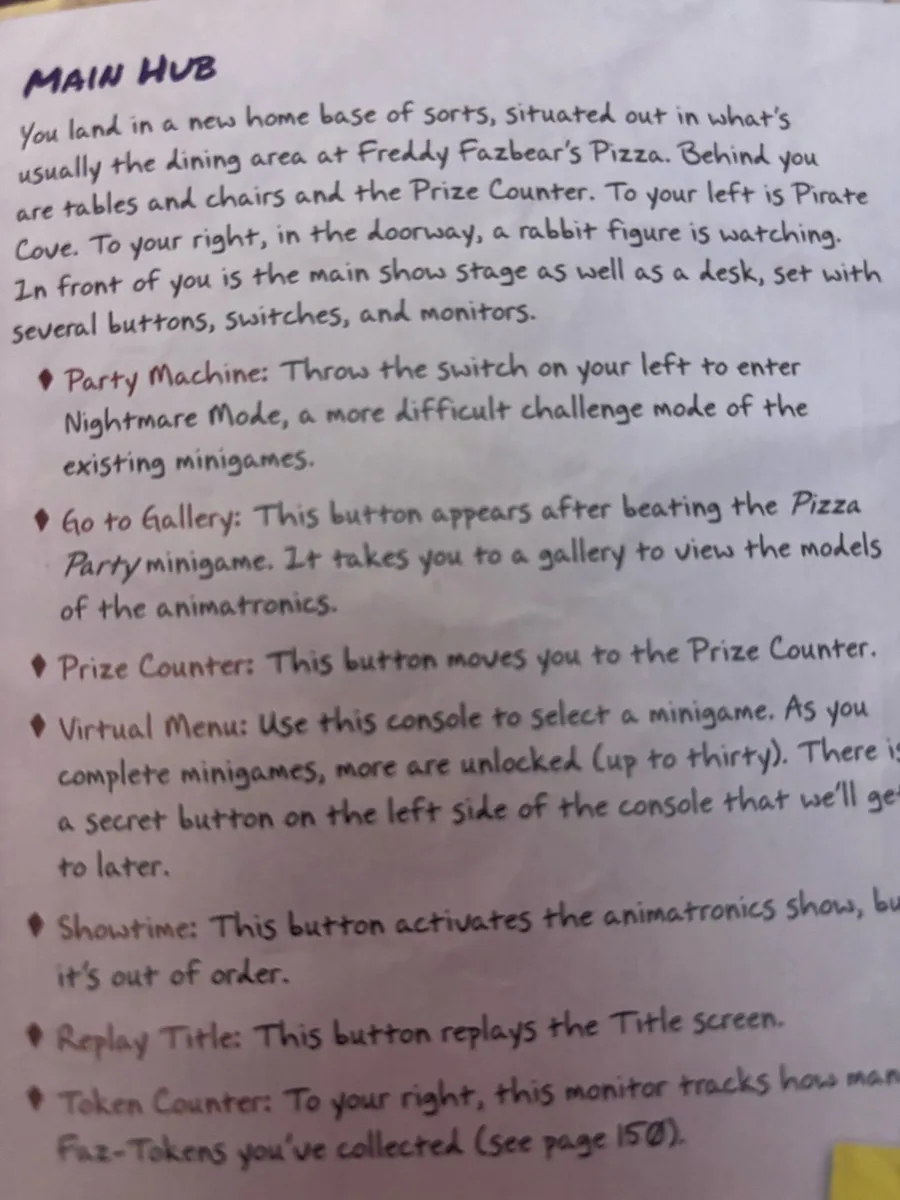 MAIN HUB
You land in a new home base of sorts, situated out in what's
usually the dining area at Freddy Fazbear's Pizza. Behind you
are tables and chairs and the Prize Counter. To your left is Pirate
Cove. To your right, in the doorway, a rabbit figure is watching.
In front of you is the main show stage as well as a desk, set with
several buttons, switches, and monitors.
♦ Party Machine: Throw the switch on your left to enter
Nightmare Mode, a more difficult challenge mode of the
existing minigames.
♦ Go to Gallery: This button appears after beating the Pizza
Party minigame. It takes you to a gallery to view the models
of the animatronics.
♦ Prize Counter: This button moves you to the Prize Counter.
♦ Virtual Menu: Use this console to select a minigame. As you
complete minigames, more are unlocked (up to thirty). There is
a secret button on the left side of the console that we'll ge
to later.
♦ Showtime: This button activates the animatronics show, bu
it's out of order.
♦ Replay Title: This button replays the Title screen.
♦ Token Counter: To your right, this monitor tracks how man
Faz-Tokens you've collected (see page 150).